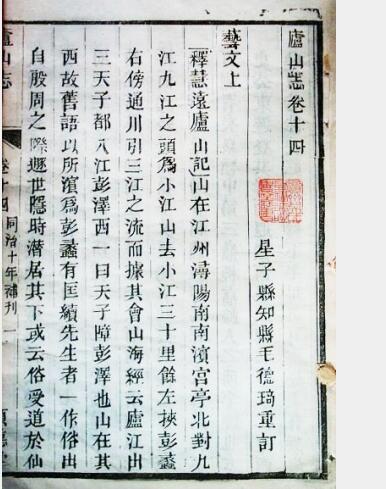 廬山志卷十四
星子縣知縣毛德琦重訂
藝文上
釋慧遠廬山記山在江州潯陽南南濱宮亭北對九
江九江之頭爲小江山去小江三十里餘左挾彭蠡
右傍通川引三江之流而據其會山海經云廬江出
三天子都入江彭澤西一曰天子障彭澤也山在其
西故舊語以所濱爲彭蠡有匡續先生者一作俗出
自殷周之際遯世隱時潜居其下或云俗受道於仙
廬山志 卷十四 同治十年補刊 一